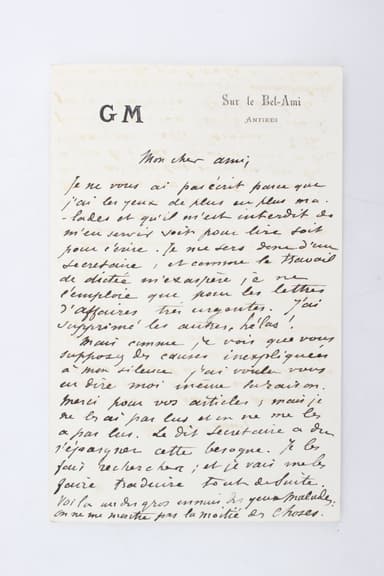 GM
Sur le Bel-Ami
ANTIBES
Mon cher ami,
Je ne vous ai pas écrit parce que
j'ai les yeux de plus en plus ma-
-lades et qu'il m'est interdit de
m'en servir soit pour lire soit
pour écrire. Je me sers donc d'un
secretaire, et comme le travail
de dictée m'exaspère je ne
l'emploie que pour les lettres
d'affaires très urgentes. J'ai
supprimé les autres, hélas!
Mais comme je vois que vous
supposez des causes inexpliquées
à mon silence j'ai voulu vous
en dire moi même la raison.
Merci pour vos articles; mais je
ne les ai pas lus et on ne me les
a pas lus. Le dit Secretaire a du
s'épargner cette besogne. Je les
fais rechercher; et je vais me les
faire traduire tout de suite.
Voilà un des gros ennuis des yeux malades:
on ne me montre pas la moitié des choses.